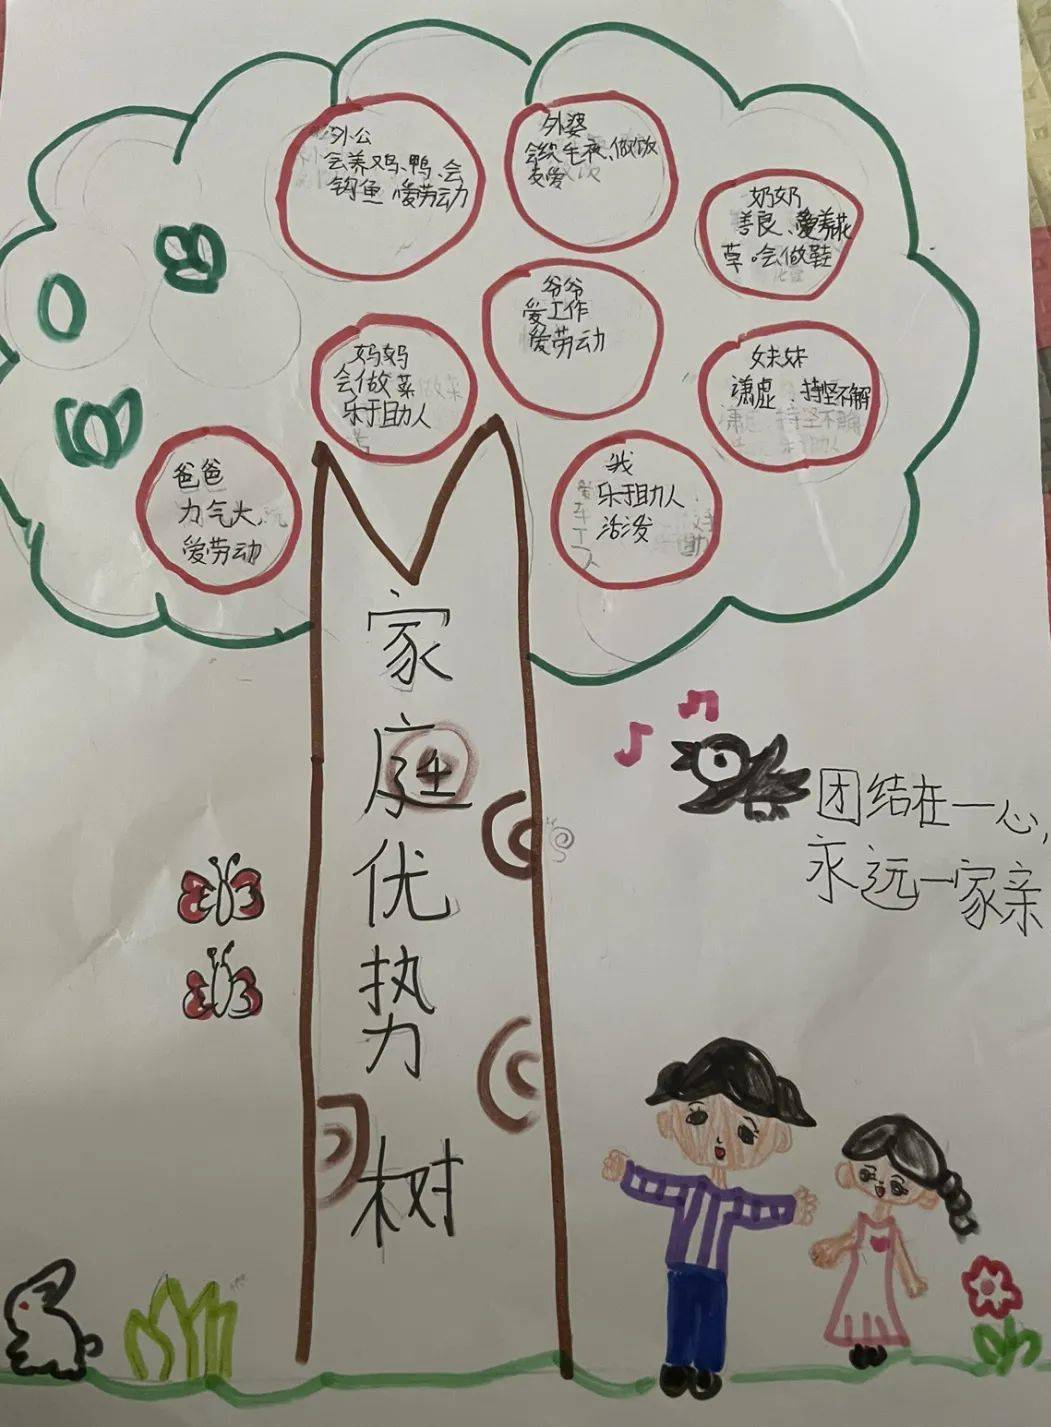 外公
会养鸡、鸭、会
钩鱼 爱劳动
外婆
会织毛衣、做饭
奶奶
善良、爱养花
草。会做鞋
爷爷
爱工作
爱劳动
妈妈
会做菜
乐于助人
妹妹
谦虚、持坚不解
爸爸
力气大、
爱劳动
我
乐于助人
活泼
家
庭
优
势
树
团结在一心,
永远一家亲